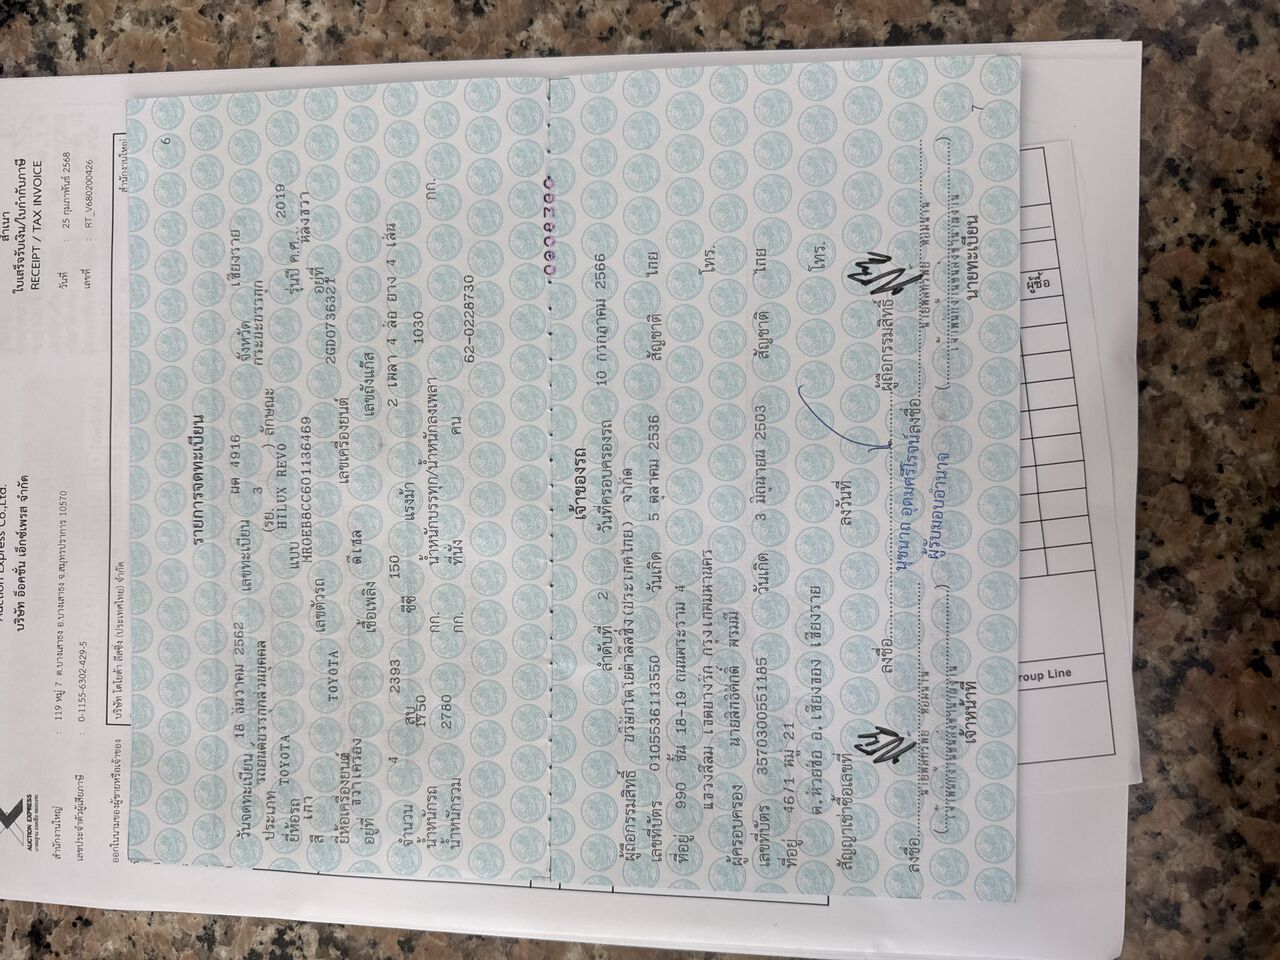 สำเนา
ใบเสร็จรับเงิน/ใบกำกับภาษี
RECEIPT / TAX INVOICE
วันที่ : 25 กุมภาพันธ์ 2568
เลขที่ : RT_V680200426
Auction Express Co.,Ltd.
บริษัท อ๊อคชั่น เอ็กซ์เพรส จำกัด
AUCTION EXPRESS
สำนักงานใหญ่ : 119 หมู่ 7 ต.บางเสาธง อ.บางเสาธง จ.สมุทรปราการ 10570
เลขประจำตัวผู้เสียภาษี : 0-1155-6302-429-5
ออกในนามของผู้ขายหรือเจ้าของ บริษัท โตโยต้า ลีสซิ่ง (ประเทศไทย) จำกัด สำนักงานใหญ่
6
รายการจดทะเบียน
วันจดทะเบียน 18 ธันวาคม 2562 เลขทะเบียน ผต 4916 จังหวัด เชียงราย
ประเภท รถยนต์บรรทุกส่วนบุคคล (รย. 3 ) ลักษณะ กระบะบรรทุก
ยี่ห้อรถ TOYOTA แบบ HILUX REVO รุ่นปี ค.ศ. 2019
สี เทา เลขตัวรถ MR0EB8CC601136469 อยู่ที่ หลังขวา
ยี่ห้อเครื่องยนต์ TOYOTA เลขเครื่องยนต์ 2GD0736321
อยู่ที่ ขวาเครื่อง เชื้อเพลิง ดีเซล เลขถังแก๊ส
จำนวน 4 สูบ 2393 ซีซี 150 แรงม้า 2 เพลา 4 ล้อ ยาง 4 เส้น
น้ำหนักรถ 1750 กก. น้ำหนักบรรทุก/น้ำหนักลงเพลา 1030 กก.
น้ำหนักรวม 2780 กก. ที่นั่ง คน 62-0228730
เจ้าของรถ
ลำดับที่ 2 วันที่ครอบครองรถ 10 กรกฎาคม 2566
ผู้ถือกรรมสิทธิ์ บริษัทโตโยต้าลีสซิ่ง(ประเทศไทย) จำกัด
เลขที่บัตร 0105536113550 วันเกิด 5 ตุลาคม 2536 สัญชาติ ไทย
ที่อยู่ 990 ชั้น 18-19 ถนนพระราม 4
แขวงสีลม เขตบางรัก กรุงเทพมหานคร โทร.
ผู้ครอบครอง นายสิทธิศักดิ์ พรมมิ
เลขที่บัตร 3570300551185 วันเกิด 3 มิถุนายน 2503 สัญชาติ ไทย
ที่อยู่ 46/1 หมู่ 21
ต.ห้วยซ้อ อ.เชียงของ เชียงราย โทร.
สัญญาเช่าซื้อเลขที่ ลงวันที่
ลงชื่อ ผู้ถือกรรมสิทธิ์
นุชนาถ อุดมศรีโรจน์
ผู้รับมอบอำนาจ
ลงชื่อ ลงชื่อ
เจ้าหน้าที่ นายทะเบียน
7
roup Line